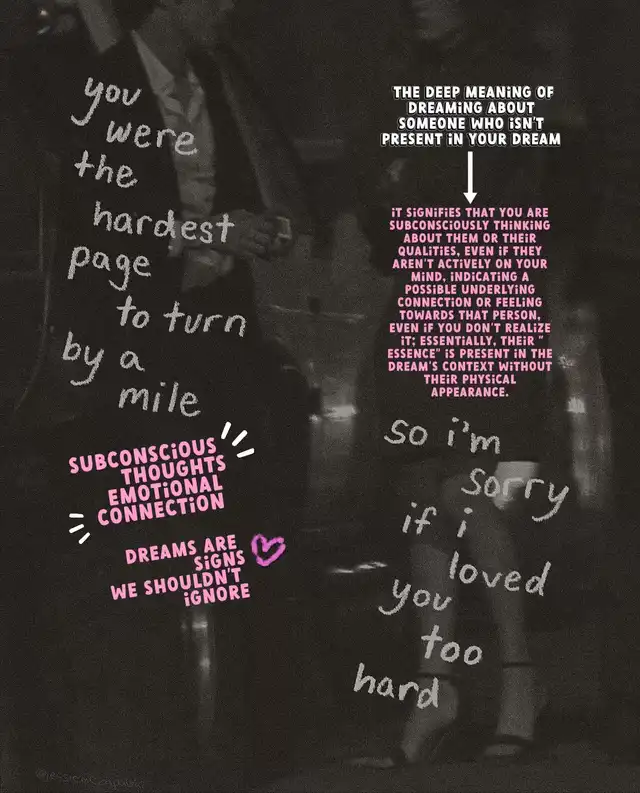 you
were
the
hardest
page
to turn
by a
mile
SUBCONSCIOUS
THOUGHTS
EMOTIONAL
CONNECTION
DREAMS ARE
SIGNS
WE SHOULDN'T
IGNORE
THE DEEP MEANING OF
DREAMING ABOUT
SOMEONE WHO ISN'T
PRESENT IN YOUR DREAM
IT SIGNIFIES THAT YOU ARE
SUBCONSCIOUSLY THINKING
ABOUT THEM OR THEIR
QUALITIES, EVEN IF THEY
AREN'T ACTIVELY ON YOUR
MIND, INDICATING A
POSSIBLE UNDERLYING
CONNECTION OR FEELING
TOWARDS THAT PERSON,
EVEN IF YOU DON'T REALIZE
IT; ESSENTIALLY, THEIR "
ESSENCE" IS PRESENT IN THE
DREAM'S CONTEXT WITHOUT
THEIR PHYSICAL
APPEARANCE.
so i'm
sorry
if i
loved
you
too
hard